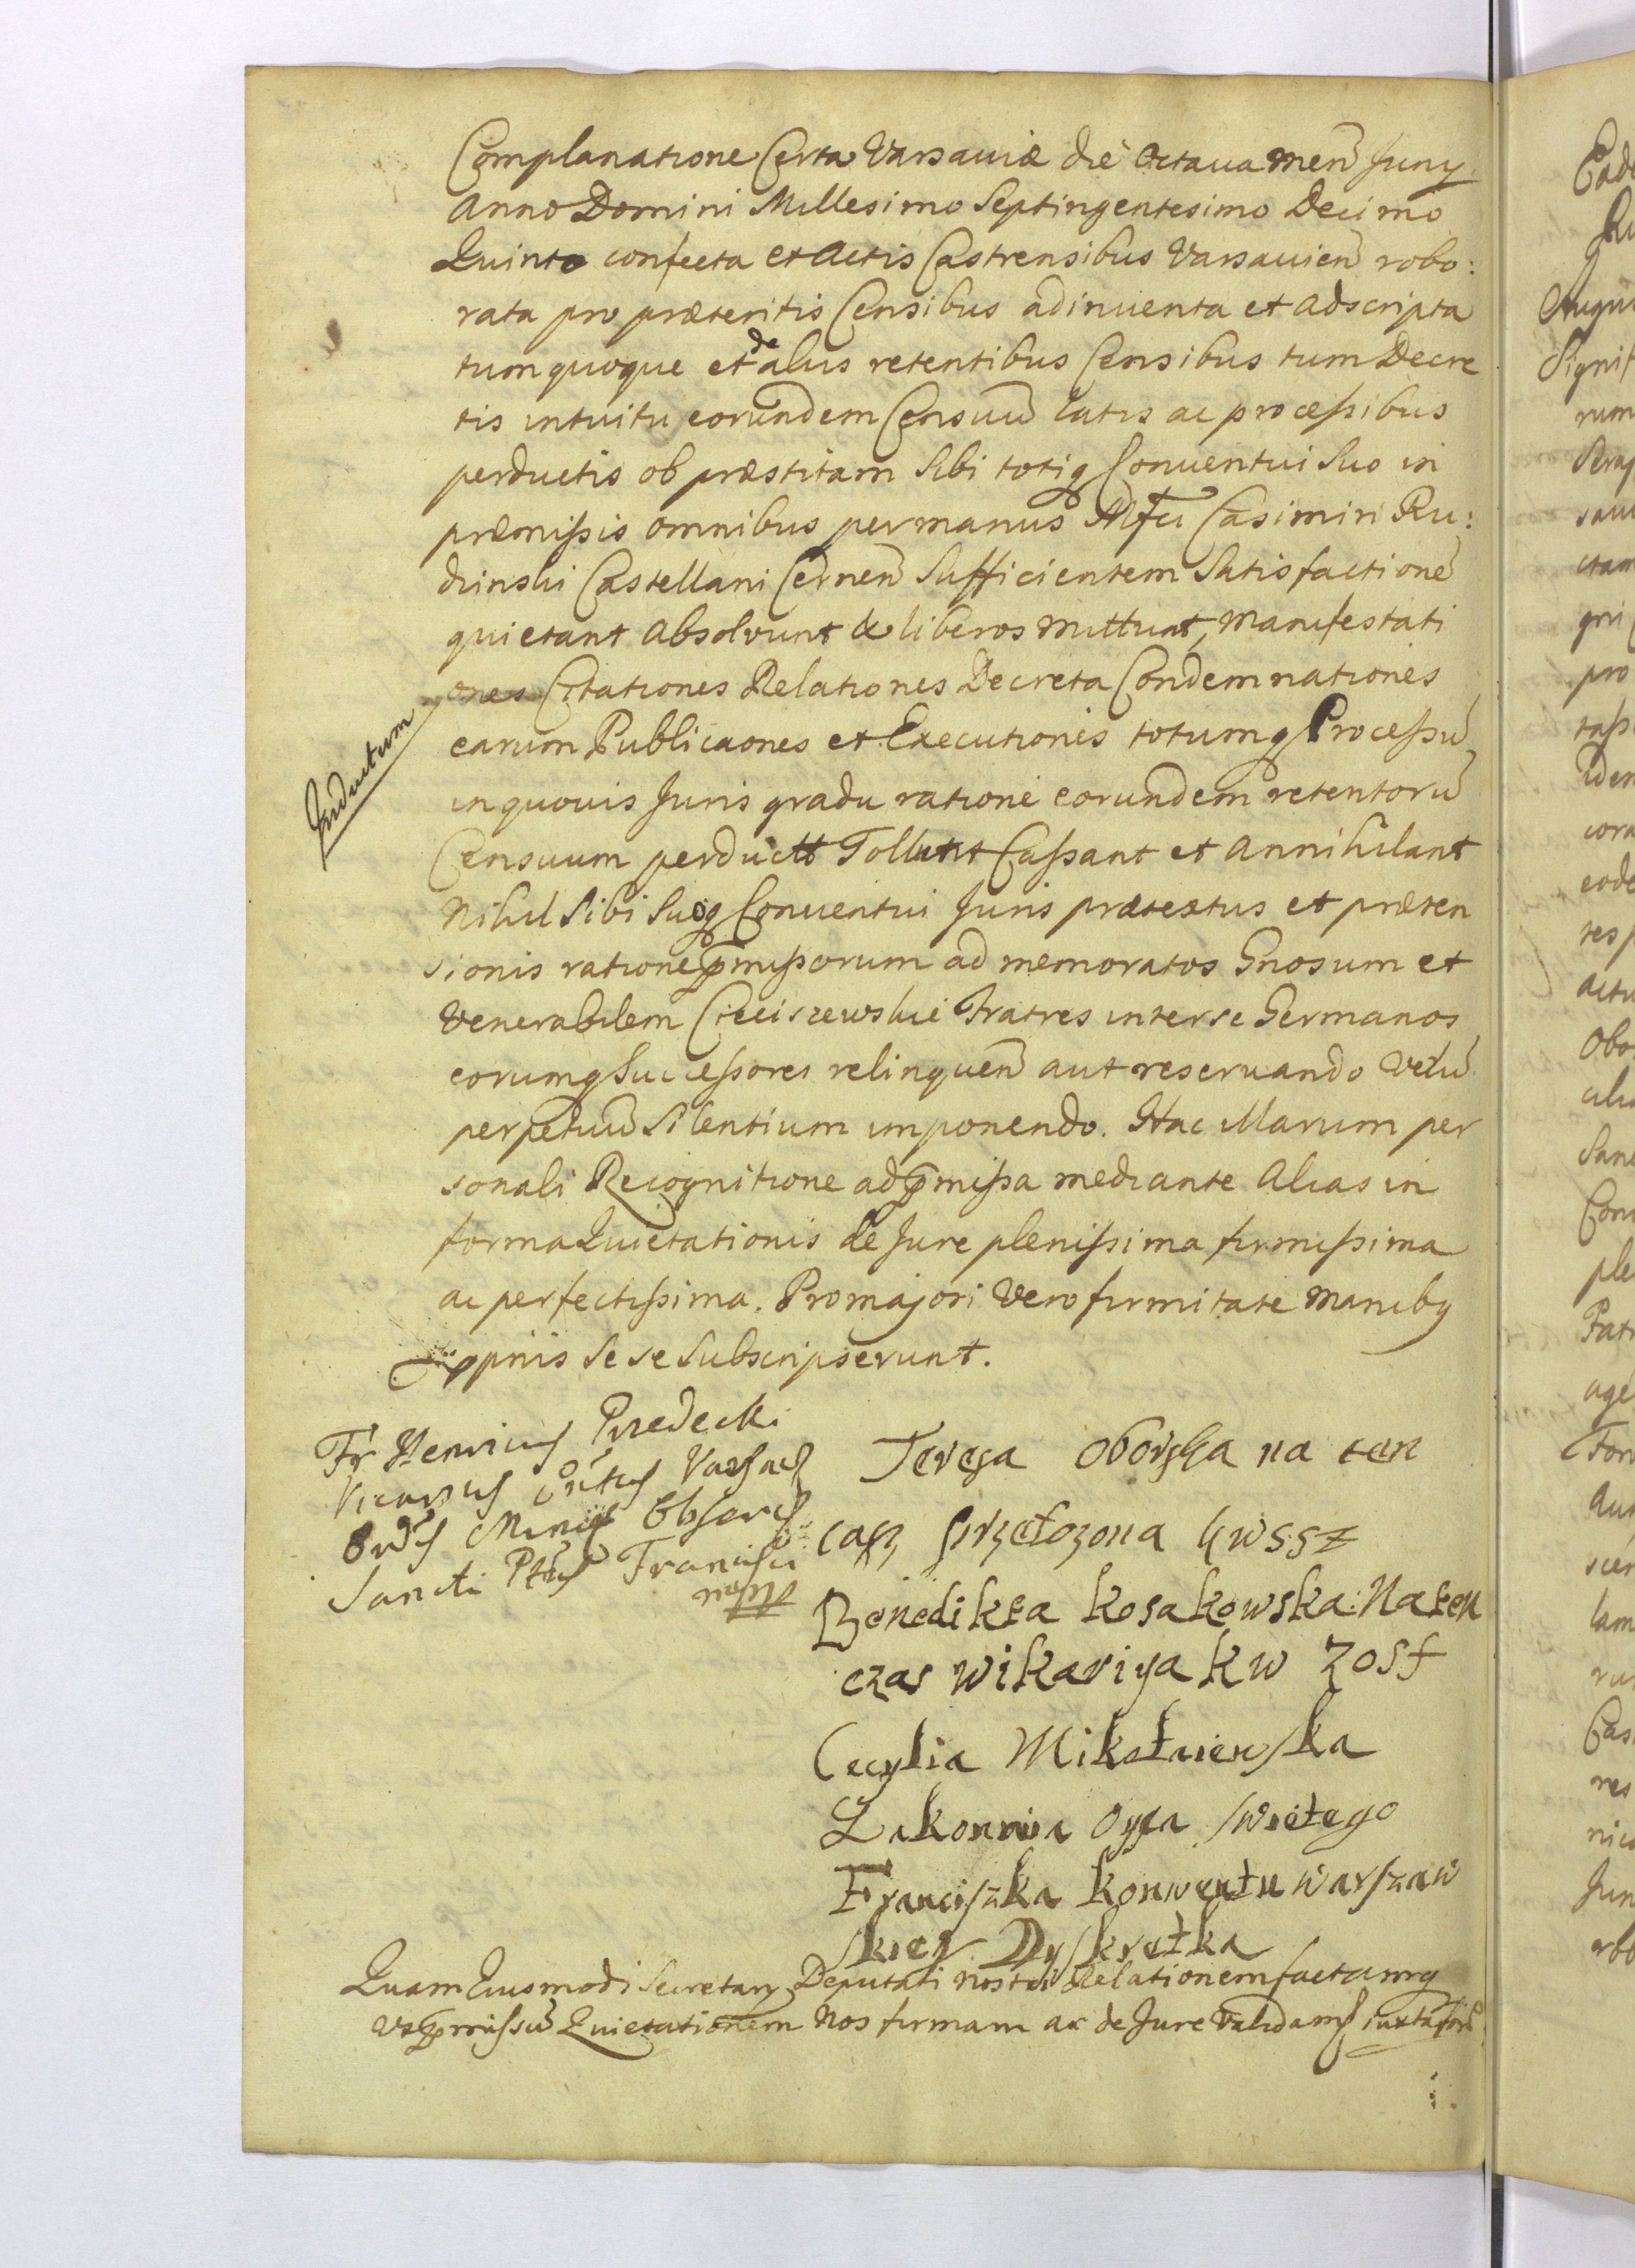 Complanatione Certa Varsaviæ die Octava Men͠ Juny
Anno Domini Millesimo Septingentesimo Decimo
Quinto confecta et Actis Castrensibus Varsavien͠ robo:
rata pro præteritis Censibus adinventa et adscripta
tum quoque et de alus retentibus Censibus tum Decre
tis intuitu eorundem Censuum̃ latis ac processibus
perductis ob præstitam Sibi totiq Conventui Suo in
præmissis omnibus per manus Casimiri Ru:
dinski Castellani Cernen͠ Sufficientem Satisfactione͠
quietant Absolvunt & liberos mittunt, Manifestati
ones Citationes Relationes Decreta Condemnationes
earum Publicaones et Executiones totumq Processu͠
in quovis Juris gradu ratione eorundem retentoru͠
Censuum perductt Tollunt Cassant et Annihilant
Nihil Sibi Suoq Conventui Juris prætextus et præten
sionis ratione p̄missorum ad memoratos Gnosum et
Venerabilem Cieciszewskie Fratres inter se Germanos
eorumq Successores relinquen͠ aut reservando Velu͠
perpetuu͠ Silentium imponendo. Hac Illarum per
sonali Recognitione ad p̄missa mediante Alias in
forma Quietationis de Jure plenissima firmissima
ac perfectissima. Pro majori Vero firmitate Manibq
ppriis Se se Subscripserunt.
Inductum
Fr Henricus Przedecki
Vicarius
Sancti Francisci
Teresa Oborska na ten
cas przełozona
Benedikta kosakowska: Na ten
czas wikariya kw zosf
Cecylia Mikołaiewska
Zakonnica Oyca swiętego
Franciszka konwentu warszaw
skieg Dyskretka
Quam Eiusmodi Secretary Deputati nostri Relationem factamq
Vt p̄missu͠ Quietationem Nos firmam ac de Jure Validam